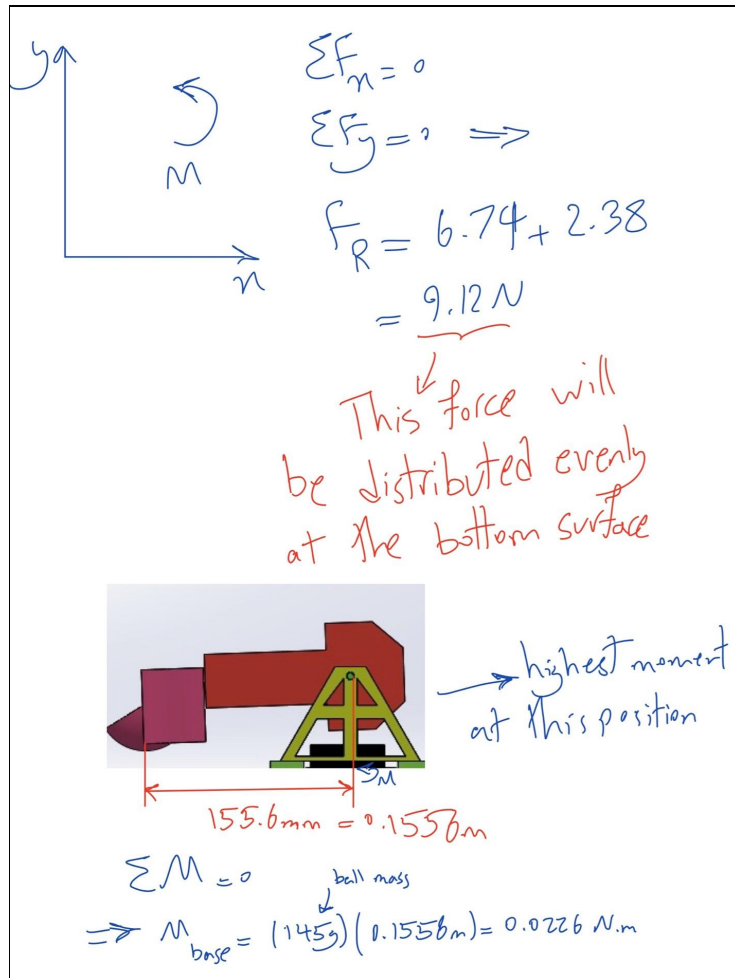 y
M
n
ΣF_n = 0
ΣF_y = 0 ⇒
F_R = 6.74 + 2.38
= 9.12 N
This force will
be distributed evenly
at the bottom surface
→ highest moment
at this position
M
155.6mm = 0.1556m
ΣM = 0
ball mass
⇒ M_base = (145g)(0.1556m) = 0.0226 N.m